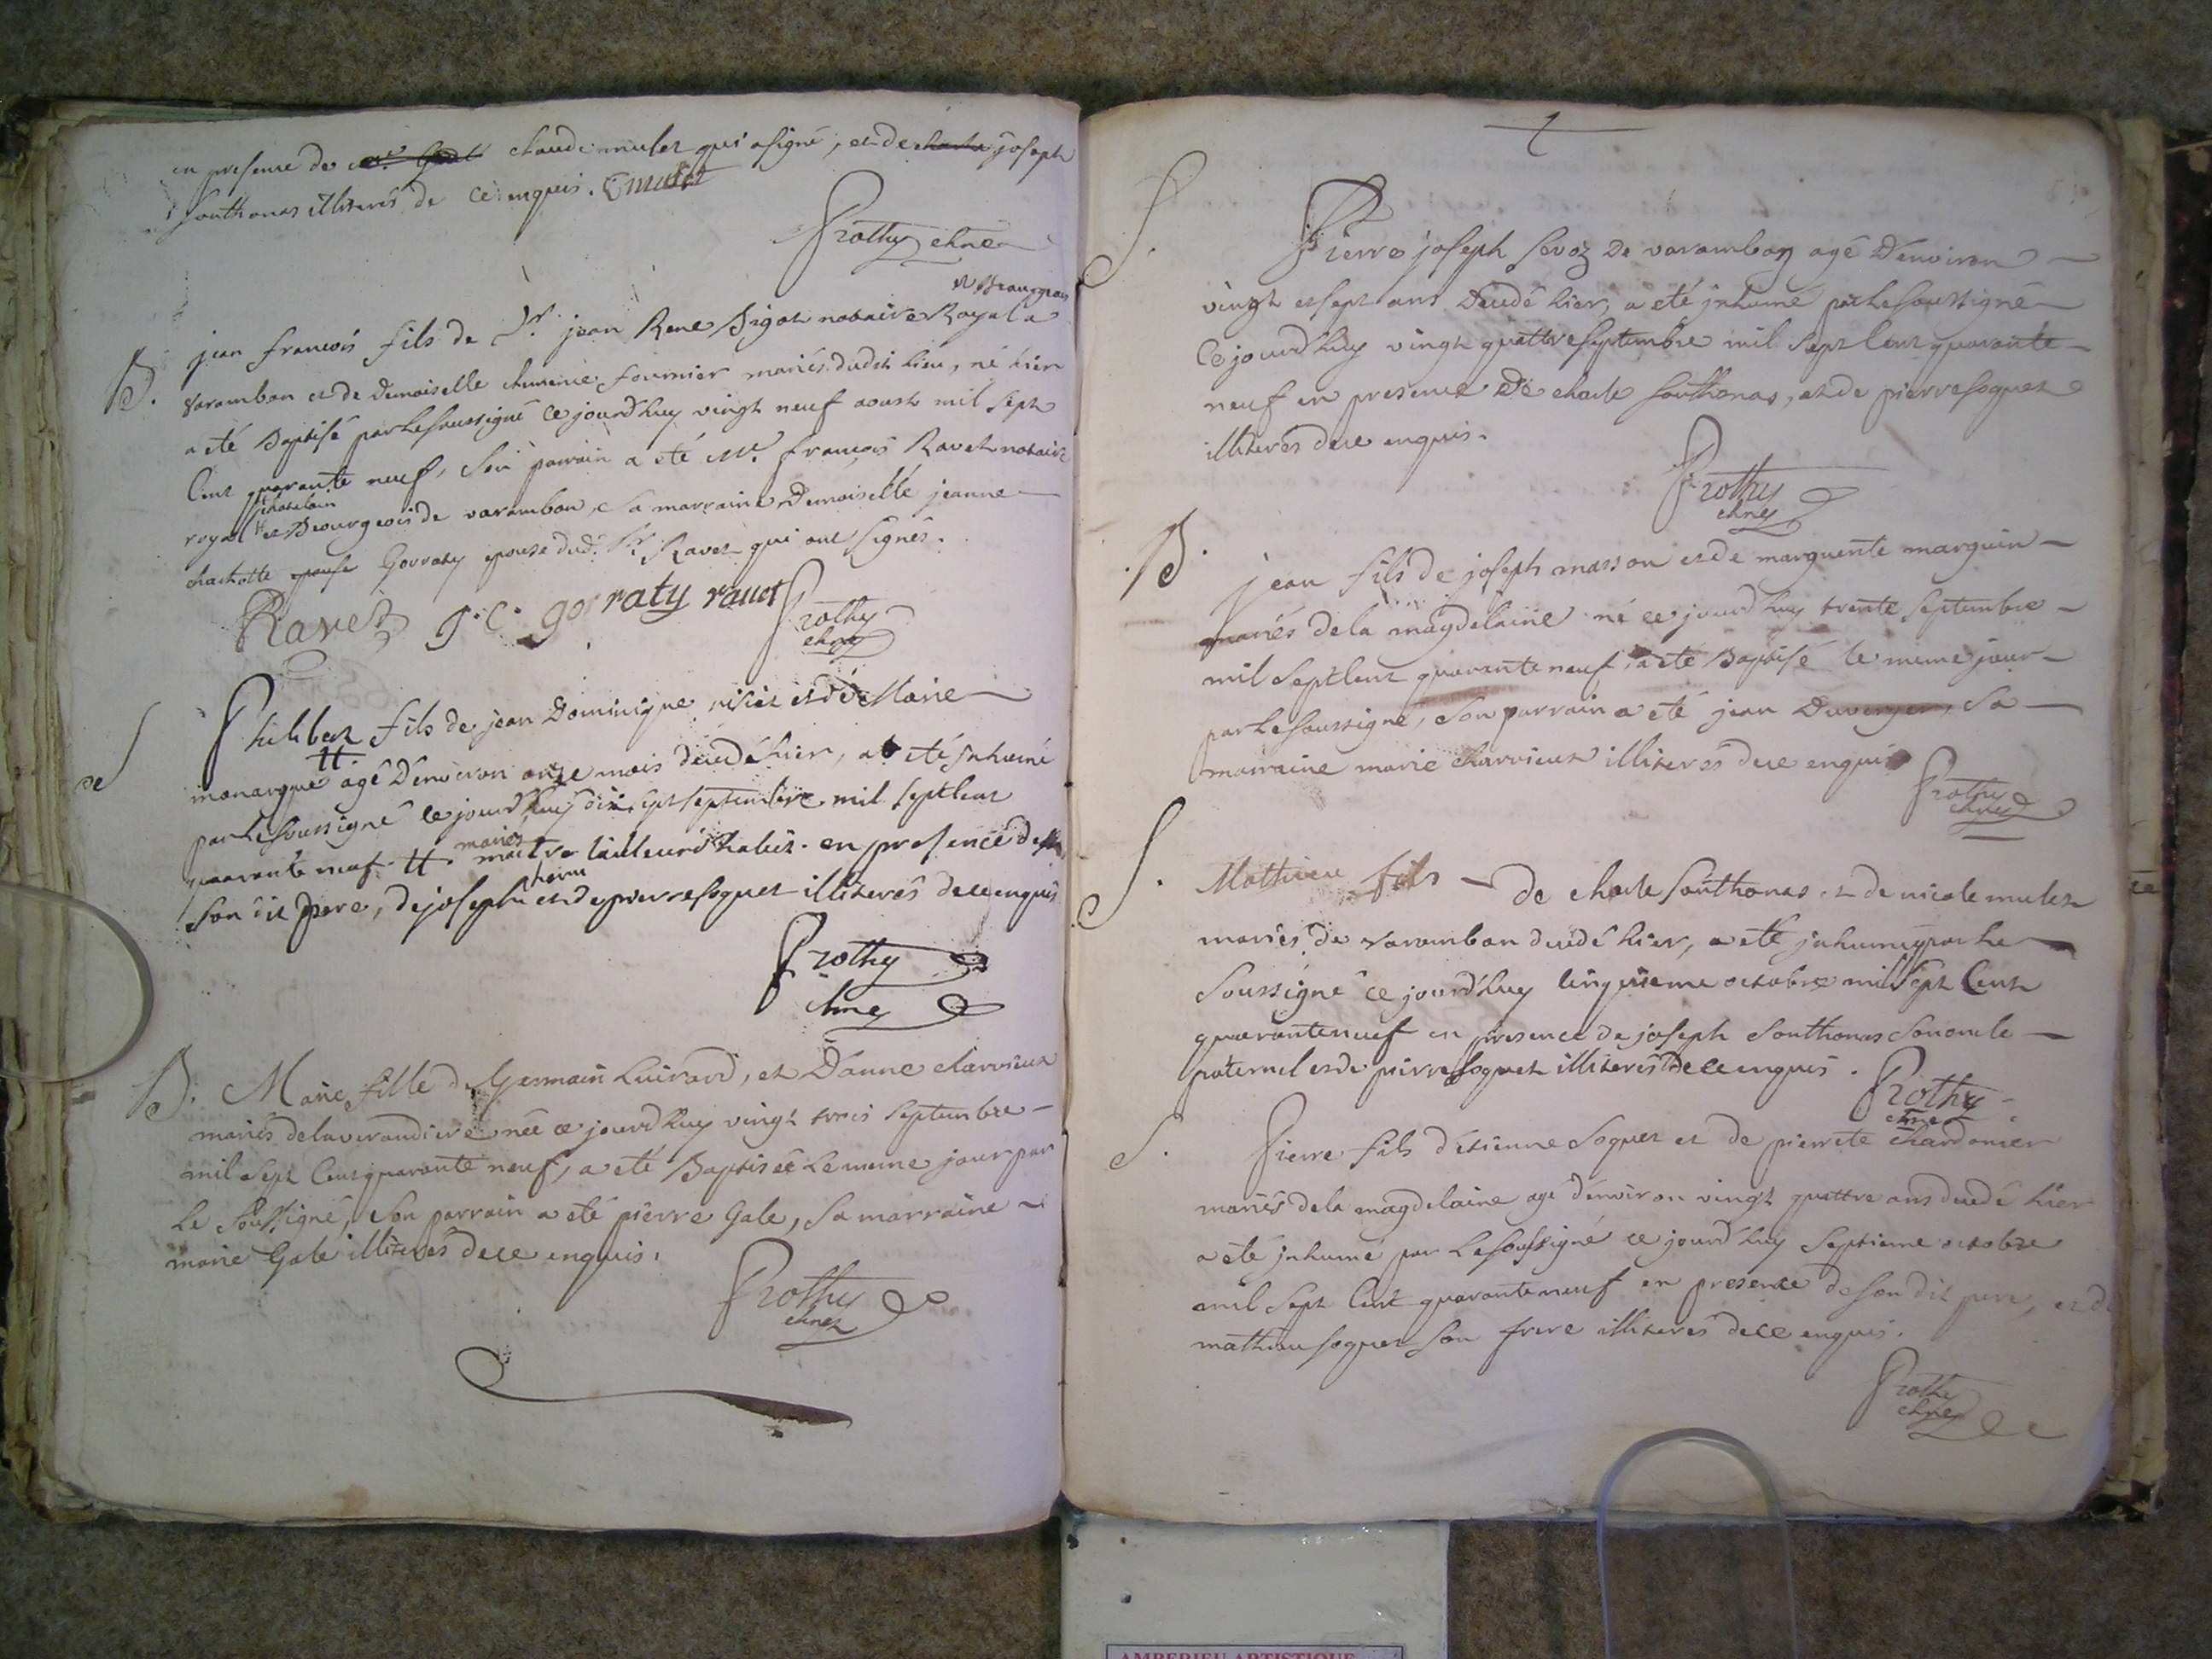 en presence de claude mulet qui a signé, et de joseph
southonas illiterés de ce enquis. C mulet
Prothy chne
et Bourgeois
B. jean françois fils de Sr. jean Rene Bigot notaire Royal a
varambon et de Demoiselle fournier mariés dudit lieu, né hier
a eté Baptisé par le soussigné ce jourd'huy vingt neuf aoust mil sept
cent quarante neuf, son parrain a eté Mr. françois Ravet notaire
chatelain
royal et Bourgeois de varambon, sa marraine Demoiselle jeanne
charlotte epouse Gorraty epouse dud. Sr. Ravet qui ont signés.
Ravet j. c. gorraty ravet Prothy
chne
S Philibert fils de jean Dominique et de Marie
monarque # agé d'environ onze mois decedé hier, a eté inhumé
par le soussigné ce jourd'huy dix sept septembre mil sept cent
mariés
quarante neuf # maitre tailleur d'habits. en presence de
son dit pere, de joseph et de pierre soquet illiterés de ce enquis
Prothy
chne
B. Marie fille de Germain Luirard, et D'anne charvieux
mariés de la verandiere née ce jourd'huy vingt trois septembre
mil sept cent quarante neuf, a eté Baptisée le meme jour par
le soussigné, son parrain a eté pierre Gale, sa marraine
marie Gale illiterés de ce enquis.
Prothy
chne
S. Pierre joseph sevoz de varambon agé d'environ
vingt et sept ans decedé hier, a eté inhumé par le soussigné
ce jourd'huy vingt quattre septembre mil sept cent quarante
neuf en presence de charle southonas, et de pierre soquet
illiterés de ce enquis.
Prothy
chne
B. jean fils de joseph masson et de marguerite marguin
mariés de la magdelaine né ce jourd'huy trente septembre
mil sept cent quarante neuf, a eté Baptisé le meme jour
par le soussigné, son parrain a eté jean Duverger, sa
marraine marie charvieux illiterés de ce enquis
Prothy
chne
S. Mathieu fils de charle southonas et de nicole mulet
mariés de varambon decedé hier, a eté inhumé par le
soussigné ce jourd'huy cinquieme octobre mil sept cent
quarante neuf en presence de joseph southonas son oncle
paternel et de pierre soquet illiterés de ce enquis.
Prothy
chne
S. Pierre fils d'etienne soquet et de pierrete chardonier
mariés de la magdelaine agé d'environ vingt quattre ans decedé hier
a eté inhumé par le soussigné ce jourd'huy septieme octobre
mil sept cent quarante neuf en presence de son dit pere, et de
mathieu soquet son frere illiterés de ce enquis.
Prothy
chne
AMBERIEU ARTISTIQUE